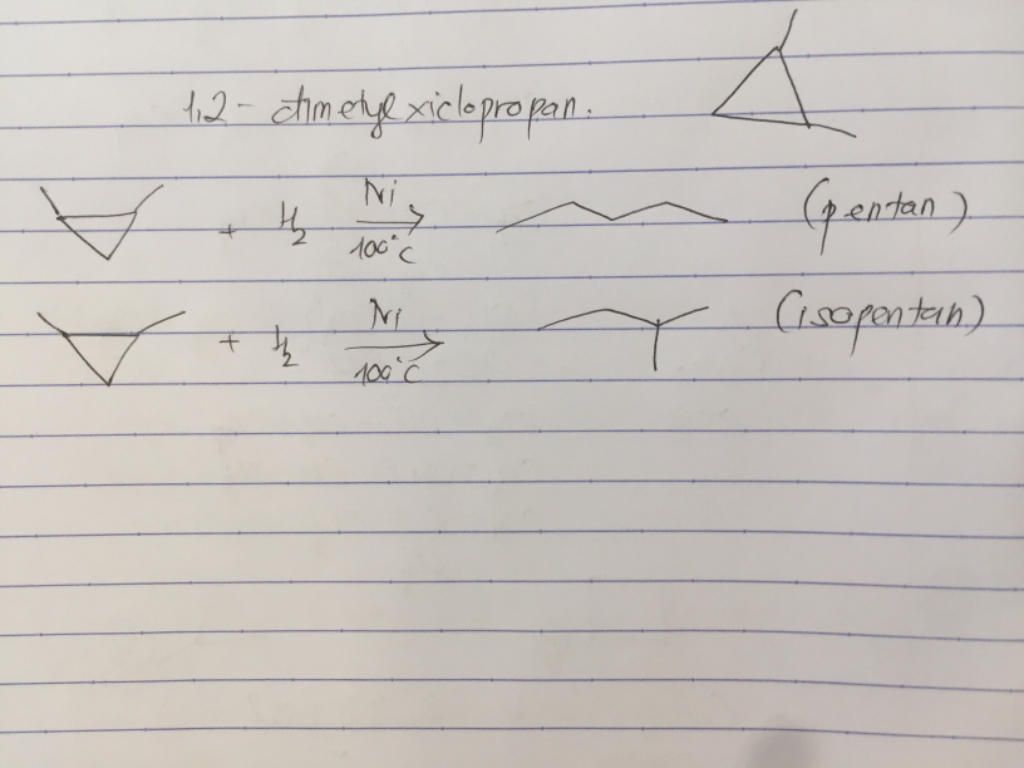 1,2 - đimetyl xiclopropan.
+ H2 Ni 100°C (pentan)
+ H2 Ni 100°C (isopentan)